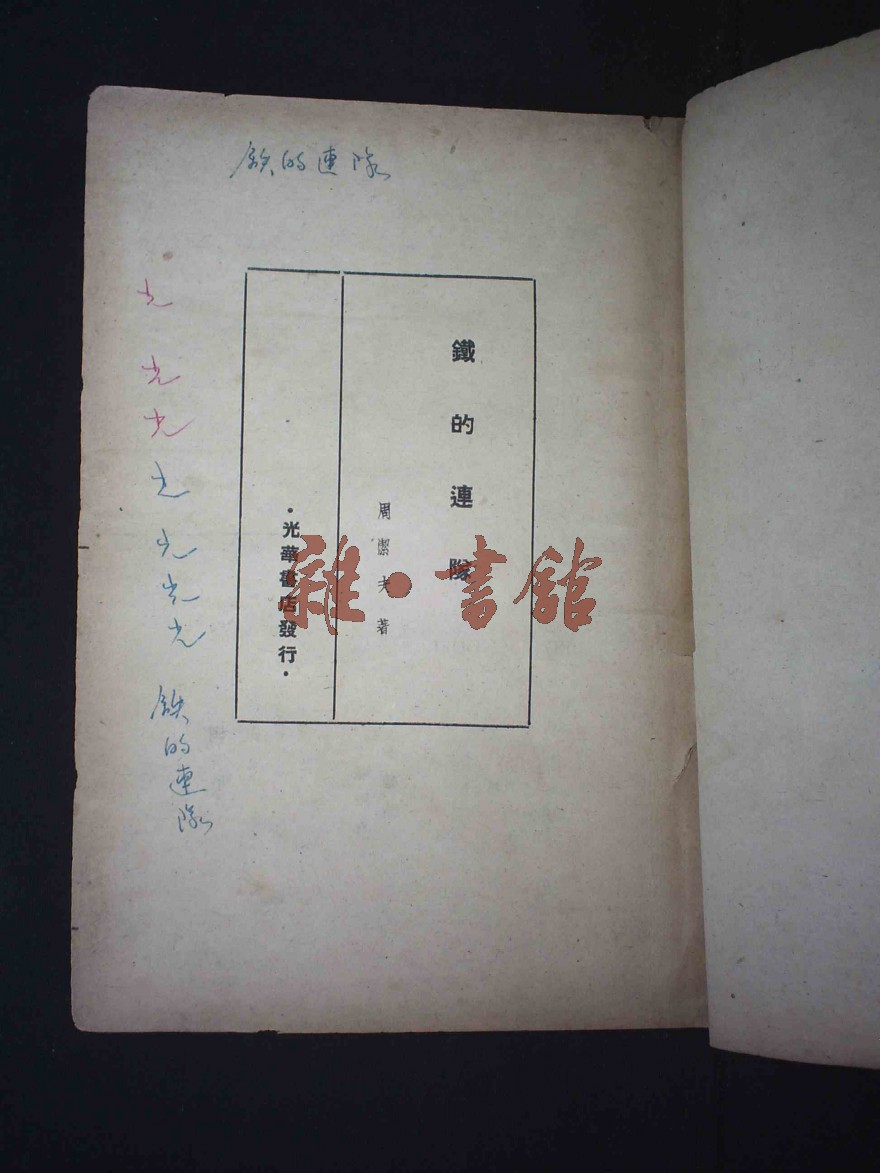 鉄的連隊
鐵的連隊
周潔夫著
·光華書店發行·
雜·書館
光
光
光
光
光
光
光
鉄的連隊